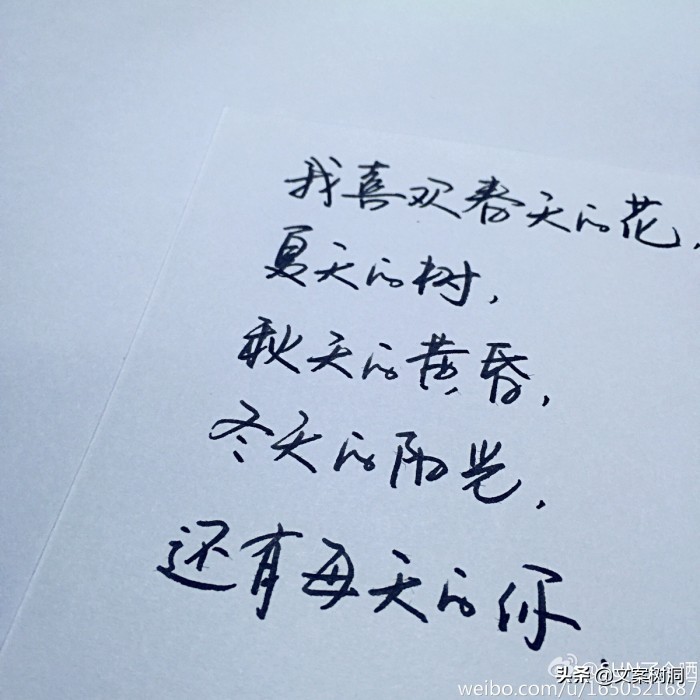 我喜欢春天的花,
夏天的树,
秋天的黄昏,
冬天的阳光,
还有每天的你
头条 @文案树洞